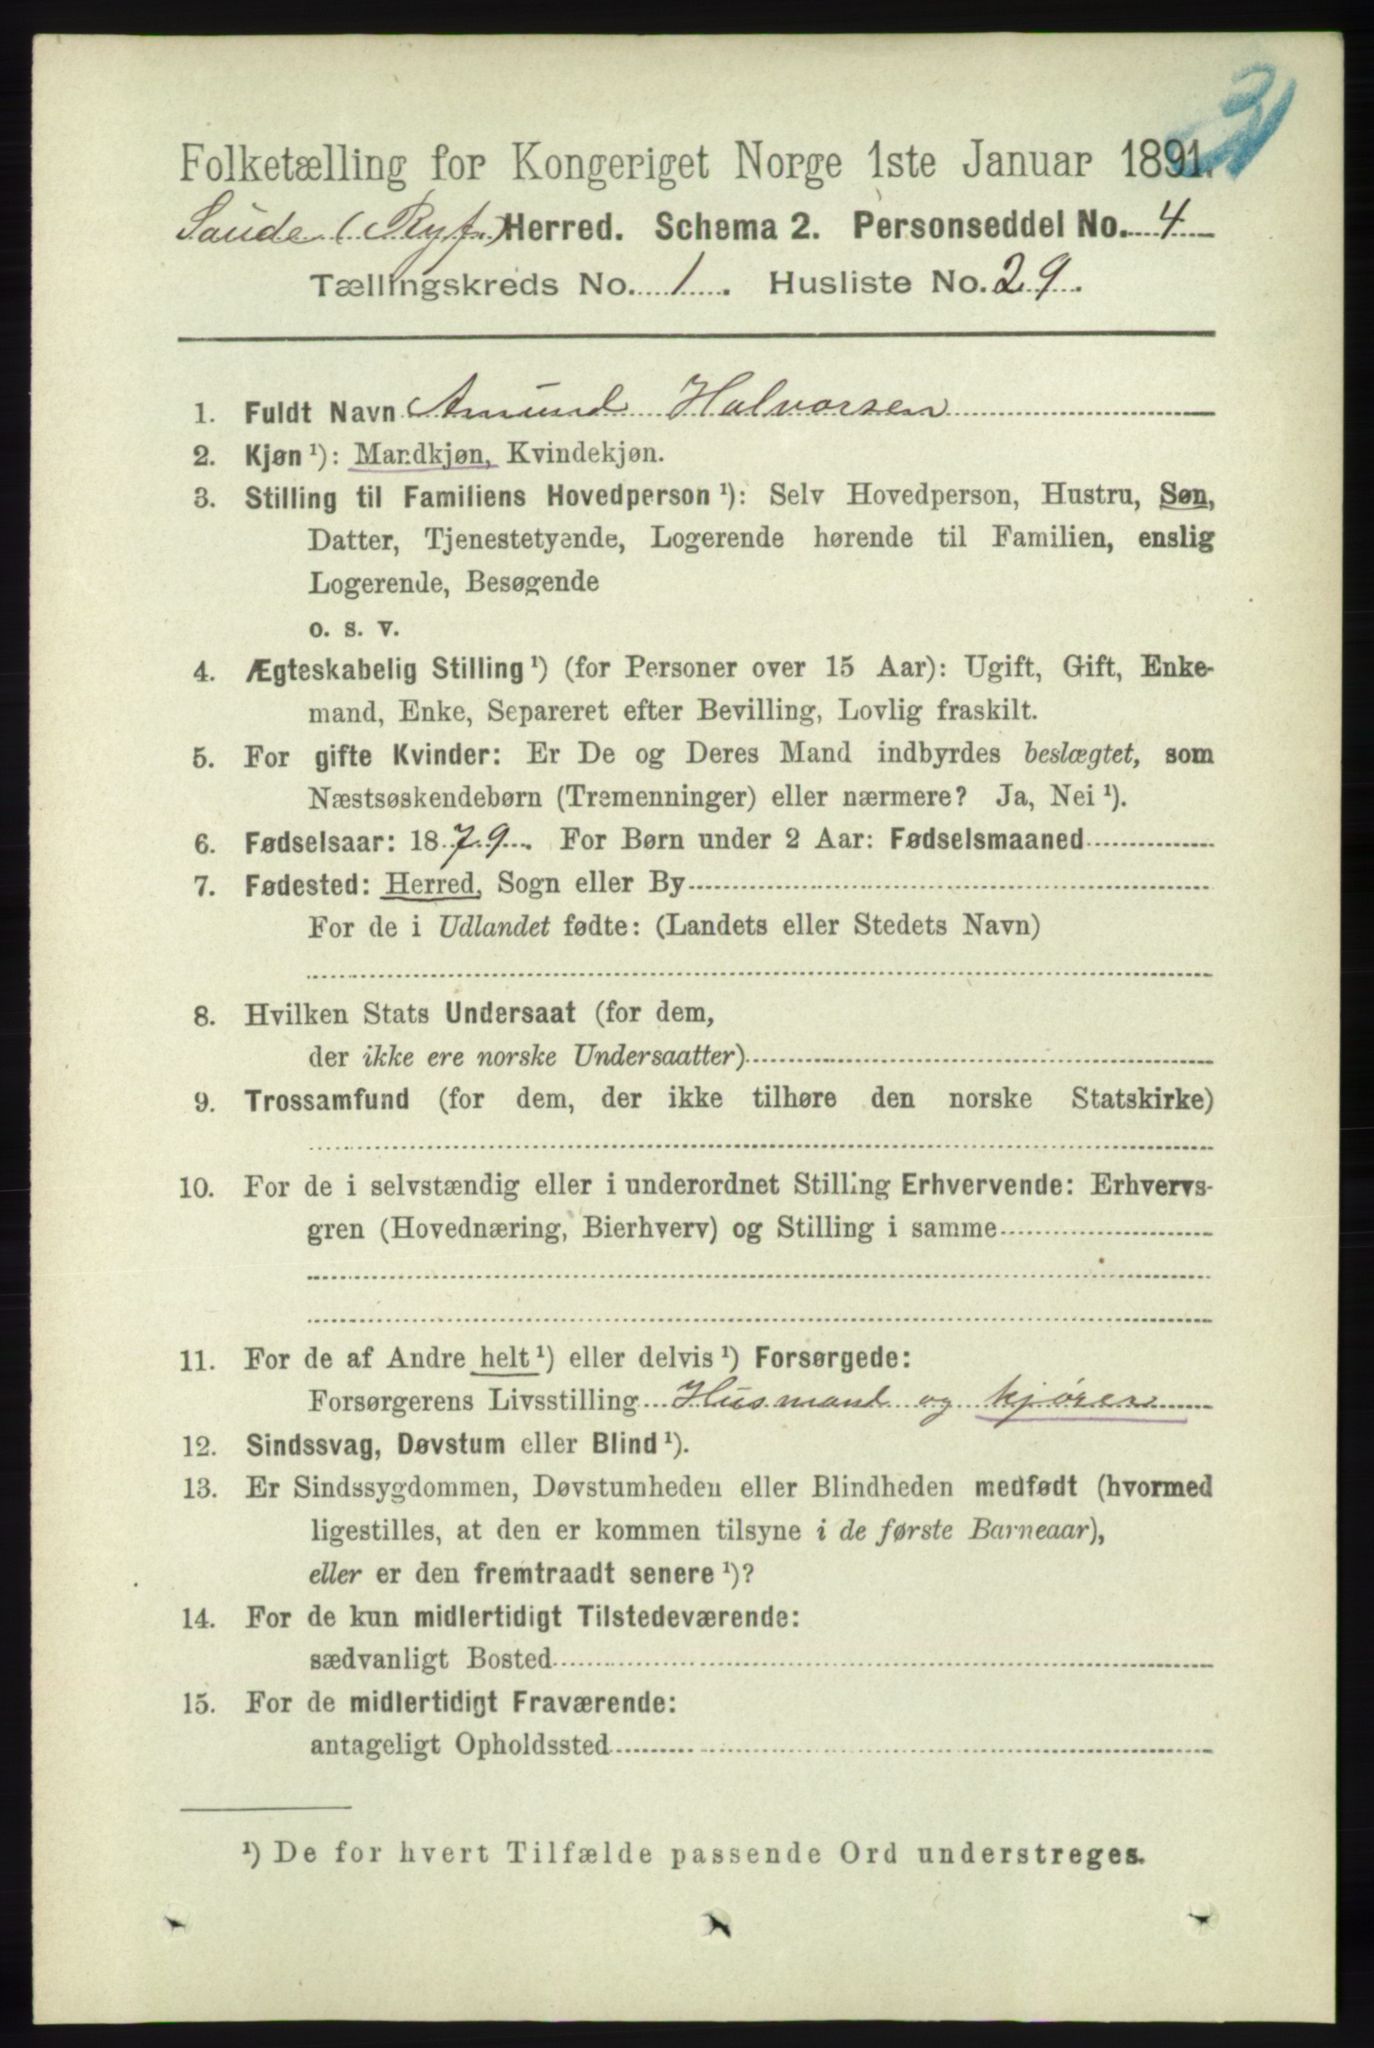 31
Folketælling for Kongeriget Norge 1ste Januar 1891.
Saude (Ryf.) Herred. Schema 2. Personseddel No. 4
Tællingskreds No. 1. Husliste No. 29.
1. Fuldt Navn Amund Halvorsen
2. Kjøn ¹): Mandkjøn, Kvindekjøn.
3. Stilling til Familiens Hovedperson ¹): Selv Hovedperson, Hustru, Søn,
Datter, Tjenestetyende, Logerende hørende til Familien, enslig
Logerende, Besøgende
o. s. v.
4. Ægteskabelig Stilling ¹) (for Personer over 15 Aar): Ugift, Gift, Enke-
mand, Enke, Separeret efter Bevilling, Lovlig fraskilt.
5. For gifte Kvinder: Er De og Deres Mand indbyrdes beslægtet, som
Næstsøskendebørn (Tremenninger) eller nærmere? Ja, Nei ¹).
6. Fødselsaar: 1879. For Børn under 2 Aar: Fødselsmaaned
7. Fødested: Herred, Sogn eller By
For de i Udlandet fødte: (Landets eller Stedets Navn)
8. Hvilken Stats Undersaat (for dem,
der ikke ere norske Undersaatter)
9. Trossamfund (for dem, der ikke tilhøre den norske Statskirke)
10. For de i selvstændig eller i underordnet Stilling Erhvervende: Erhvervs-
gren (Hovednæring, Bierhverv) og Stilling i samme
11. For de af Andre helt ¹) eller delvis ¹) Forsørgede:
Forsørgerens Livsstilling Husmand og kjører
12. Sindssvag, Døvstum eller Blind ¹).
13. Er Sindssygdommen, Døvstumheden eller Blindheden medfødt (hvormed
ligestilles, at den er kommen tilsyne i de første Barneaar),
eller er den fremtraadt senere ¹)?
14. For de kun midlertidigt Tilstedeværende:
sædvanligt Bosted
15. For de midlertidigt Fraværende:
antageligt Opholdssted
¹) De for hvert Tilfælde passende Ord understreges.